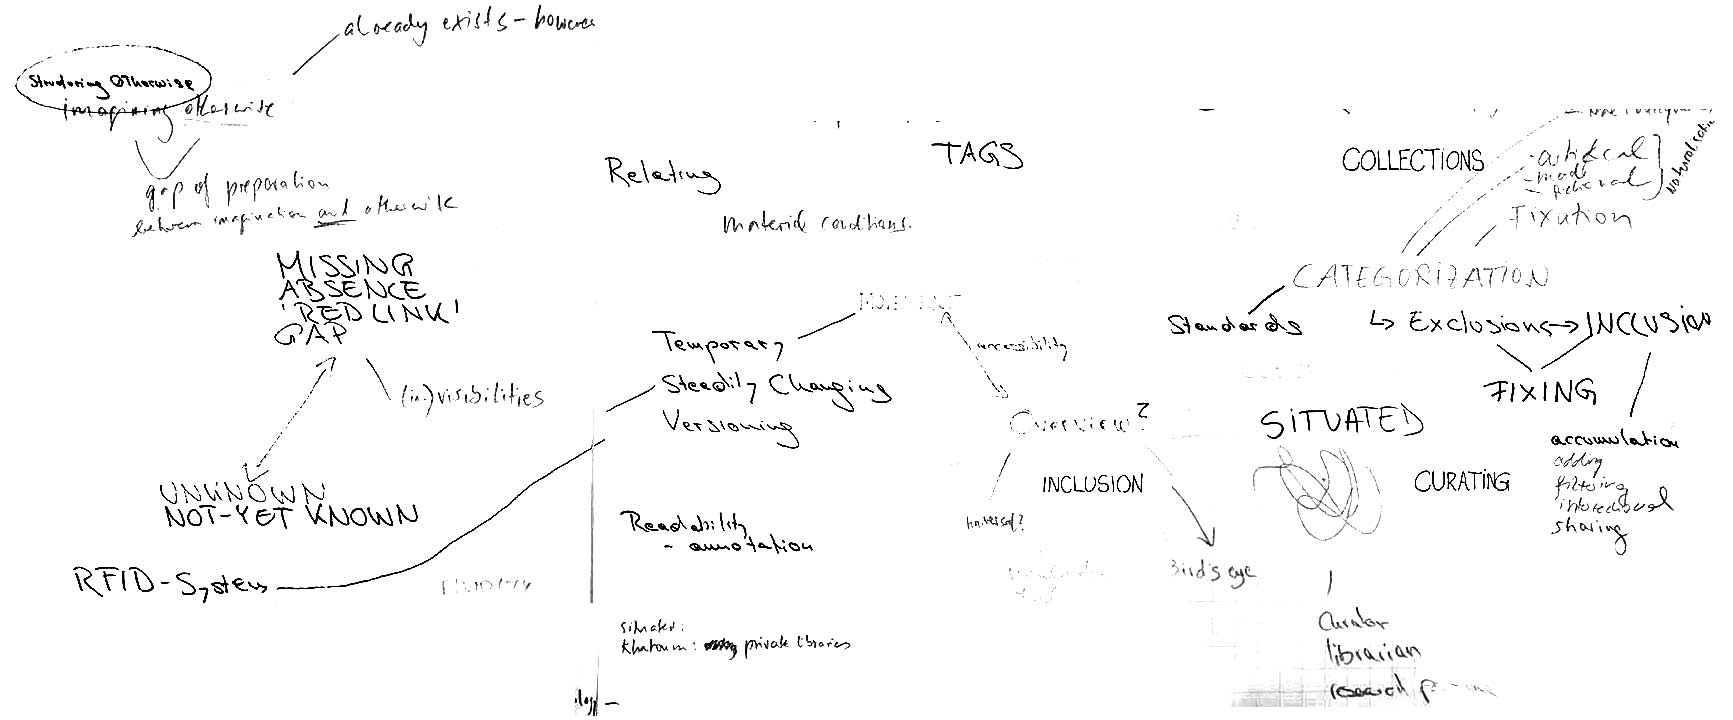 already exists - however
Structuring Otherwise
imagining otherwise
gap of preparation
between imagination and otherwise
MISSING
ABSENCE
'RED LINK'
GAP
(in)visibilities
UNKNOWN
NOT-YET KNOWN
RFID-System
Relating
TAGS
Material conditions.
Temporary
Steadily Changing
Versioning
accessibility
Overview?
INCLUSION
universal?
Bird's eye
Readability
- annotation
situated:
Khartoum: private libraries
COLLECTIONS
- artificial
- made
- fictional
Naturalisation
Fixation
CATEGORIZATION
Standards
↳ Exclusions → INCLUSION
FIXING
SITUATED
CURATING
accumulation
adding
filtering
intentional
sharing
Curator
librarian
research